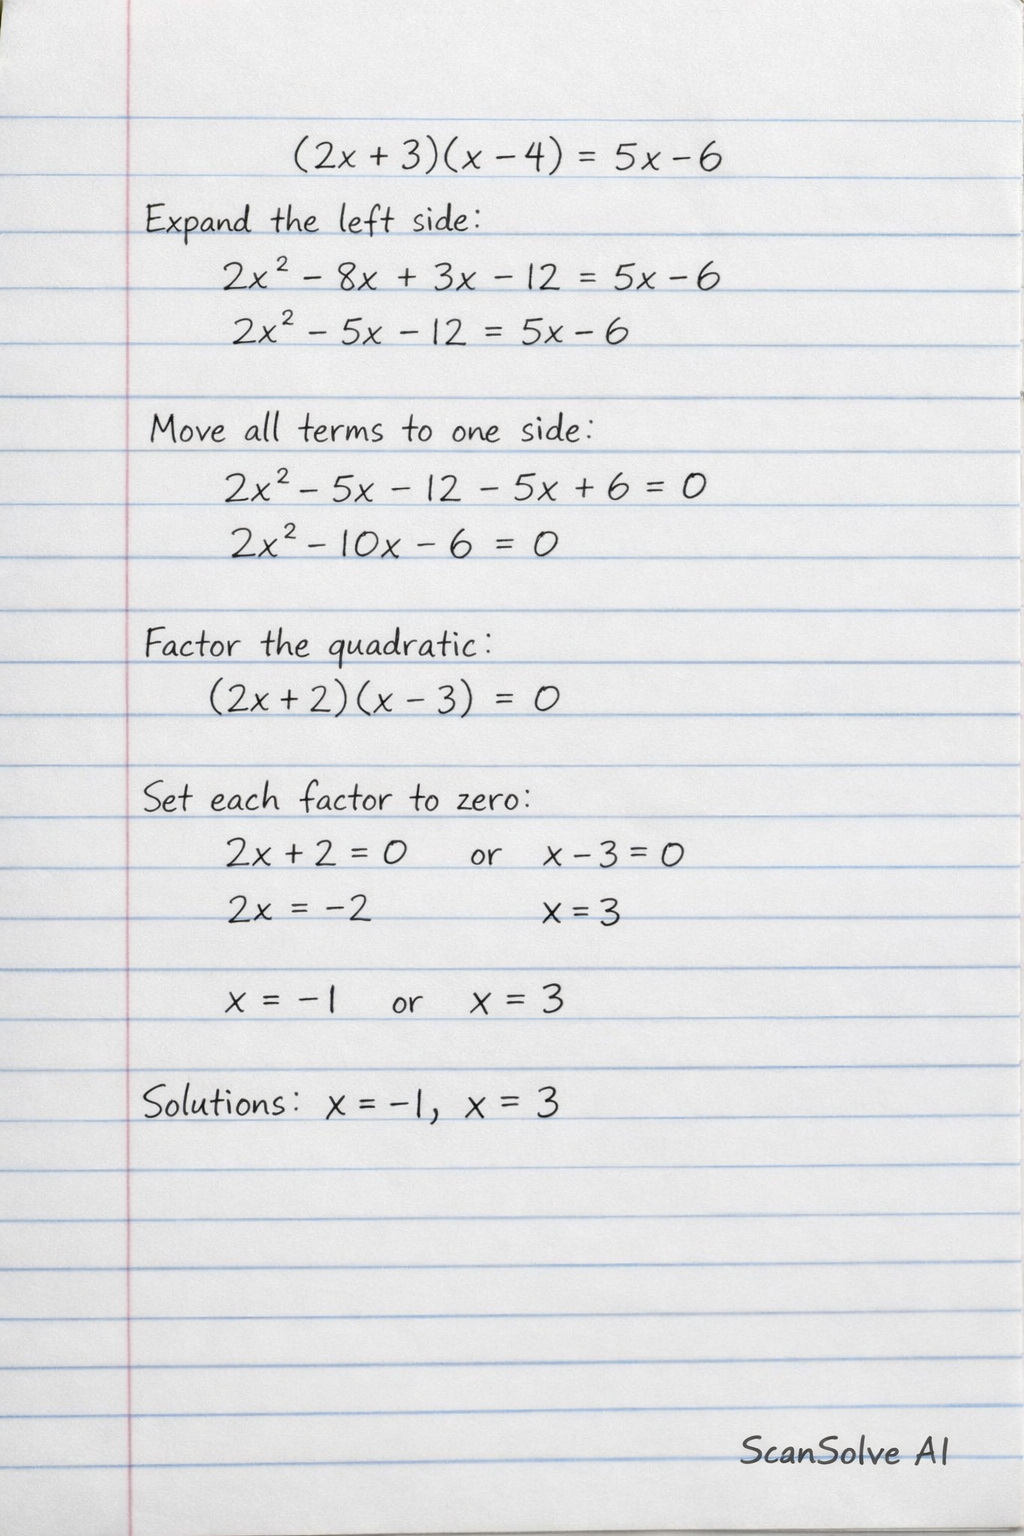 (2x + 3)(x − 4) = 5x − 6
Expand the left side:
2x² − 8x + 3x − 12 = 5x − 6
2x² − 5x − 12 = 5x − 6
Move all terms to one side:
2x² − 5x − 12 − 5x + 6 = 0
2x² − 10x − 6 = 0
Factor the quadratic:
(2x + 2)(x − 3) = 0
Set each factor to zero:
2x + 2 = 0 or x − 3 = 0
2x = −2 x = 3
x = −1 or x = 3
Solutions: x = −1, x = 3
ScanSolve AI